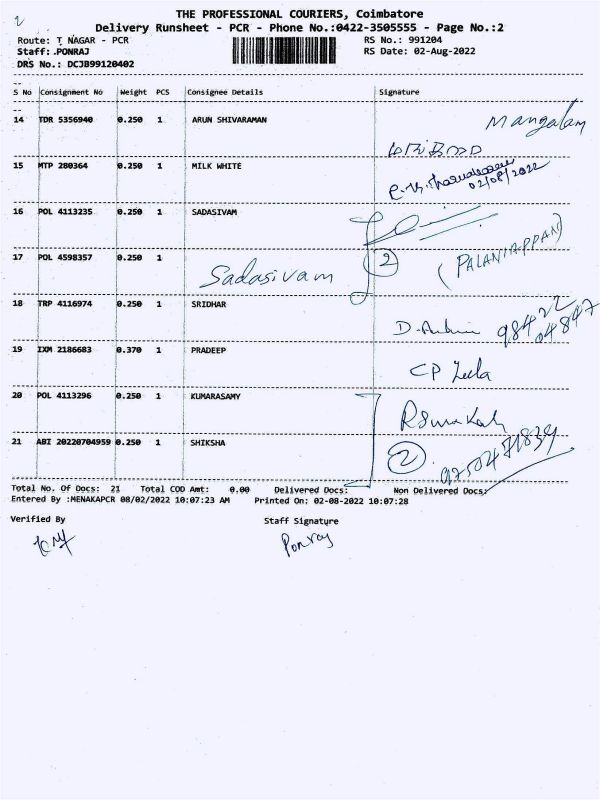 2
THE PROFESSIONAL COURIERS, Coimbatore
Delivery Runsheet - PCR - Phone No.:0422-3505555 - Page No.:2
Route: T NAGAR - PCR RS No.: 991204
Staff: .PONRAJ RS Date: 02-Aug-2022
DRS No.: DCJB99120402
S No Consignment No Weight PCS Consignee Details Signature
14 TDR 5356940 0.250 1 ARUN SHIVARAMAN Mangalam
15 MTP 280364 0.250 1 MILK WHITE
02/08/2022
16 POL 4113235 0.250 1 SADASIVAM
17 POL 4598357 0.250 1 Sadasivam 2 (PALANIAPPAN)
18 TRP 4116974 0.250 1 SRIDHAR
98422
04847
19 IXM 2186683 0.370 1 PRADEEP
CP Leela
20 POL 4113296 0.250 1 KUMARASAMY
21 ABI 20220704959 0.250 1 SHIKSHA 2
Total No. Of Docs: 21 Total COD Amt: 0.00 Delivered Docs: Non Delivered Docs:
Entered By :MENAKAPCR 08/02/2022 10:07:23 AM Printed On: 02-08-2022 10:07:28
Verified By Staff Signature
Ponraj